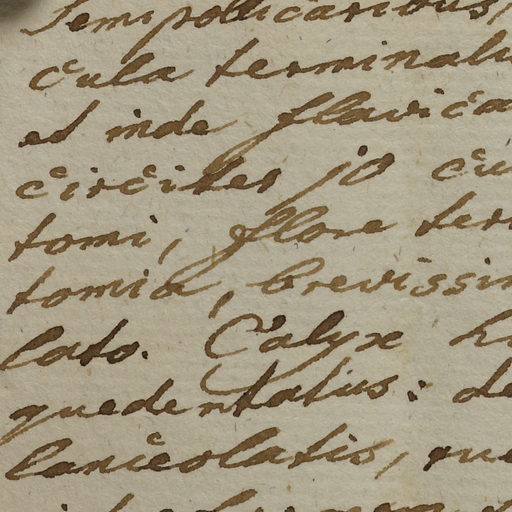 semipollicaribus,
cula terminalis
et inde flavica
circiter 10 cu
tomi, flore ter
tomia, brevissim
lato. Calyx h
quedentatus: de
lanceolatis, que